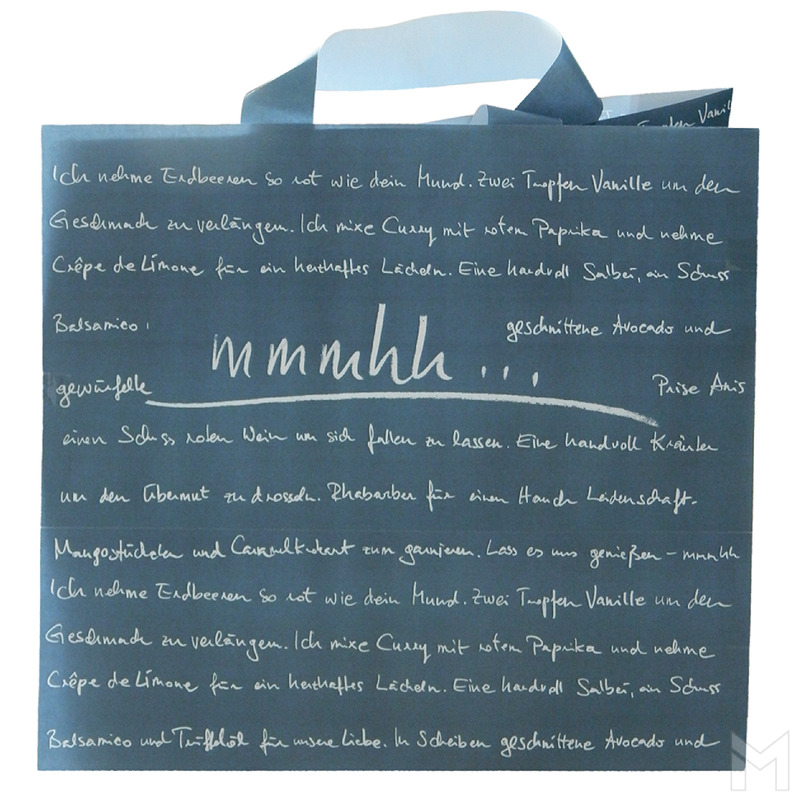 Tropfen Vanil
Ich nehme Erdbeeren so rot wie dein Mund. Zwei Tropfen Vanille um den
Geschmack zu verlängen. Ich mixe Curry mit rotem Paprika und nehme
Crêpe de Limone für ein herzhaftes Lächeln. Eine handvoll Salbei, ein Schuss
Balsamico geschnittene Avocado und
mmmhh...
gewürfelte Prise Anis
einen Schuss roten Wein um sich fallen zu lassen. Eine handvoll Kräuter
um den Übermut zu drosseln. Rhabarber für einen Hauch Leidenschaft.
Mangostückchen und zum garnieren. Lass es uns genießen - mmmhh
Ich nehme Erdbeeren so rot wie dein Mund. Zwei Tropfen Vanille um den
Geschmack zu verlängen. Ich mixe Curry mit rotem Paprika und nehme
Crêpe de Limone für ein herzhaftes Lächeln. Eine handvoll Salbei, ein Schuss
Balsamico und Trüffelöl für unsere Liebe. In Scheiben geschnittene Avocado und
M